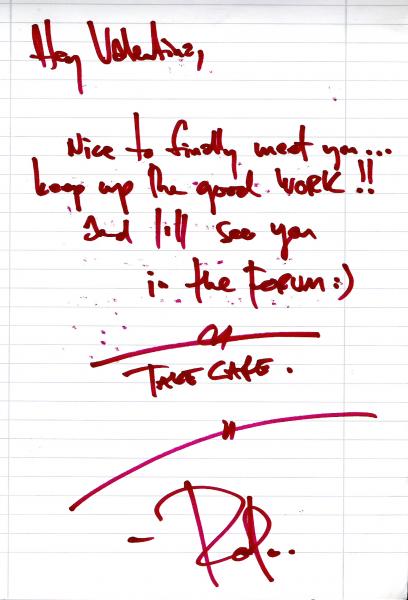 Hey Valentina,
Nice to finally meet you...
keep up the good WORK!!
And I'll see you
in the FORUM :)
TAKE CARE.